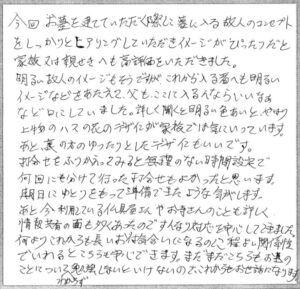 今回 お墓を建てていただく際に墓に入る故人のコンセプト
をしっかりとヒアリングしていただきイメージがぴったりだと
家族又は親せきへも高評価をいただきました。
明るい故人のイメージもそうですが これから入る者へも明るい
イメージなどをあたえて、父もここに入るんならいいなぁ
など口にしていました。詳しく聞くと明るい色あいと、やはり
上物のハスの花のデザインが家族では気にいっています。
あと、裏の木のゆったりとしたデザインもいいです。
打合せをふりかえってみると無理のない時間設定で
何回にも分けて行った打合せもよかったと思います。
期日にゆとりをもって準備できたような気がします。
あと今利用している仏具屋さんやお寺さんのことも詳しく
情報共有の面も多くあったのですんなり対応を安心してできました。
何よりこれからも長いお付き合いになるので程よい関係性
でいれるとこちらも安心できます。まだまだこちらもお墓の
ことについてわからず勉強しないといけないので、これからもお世話になります